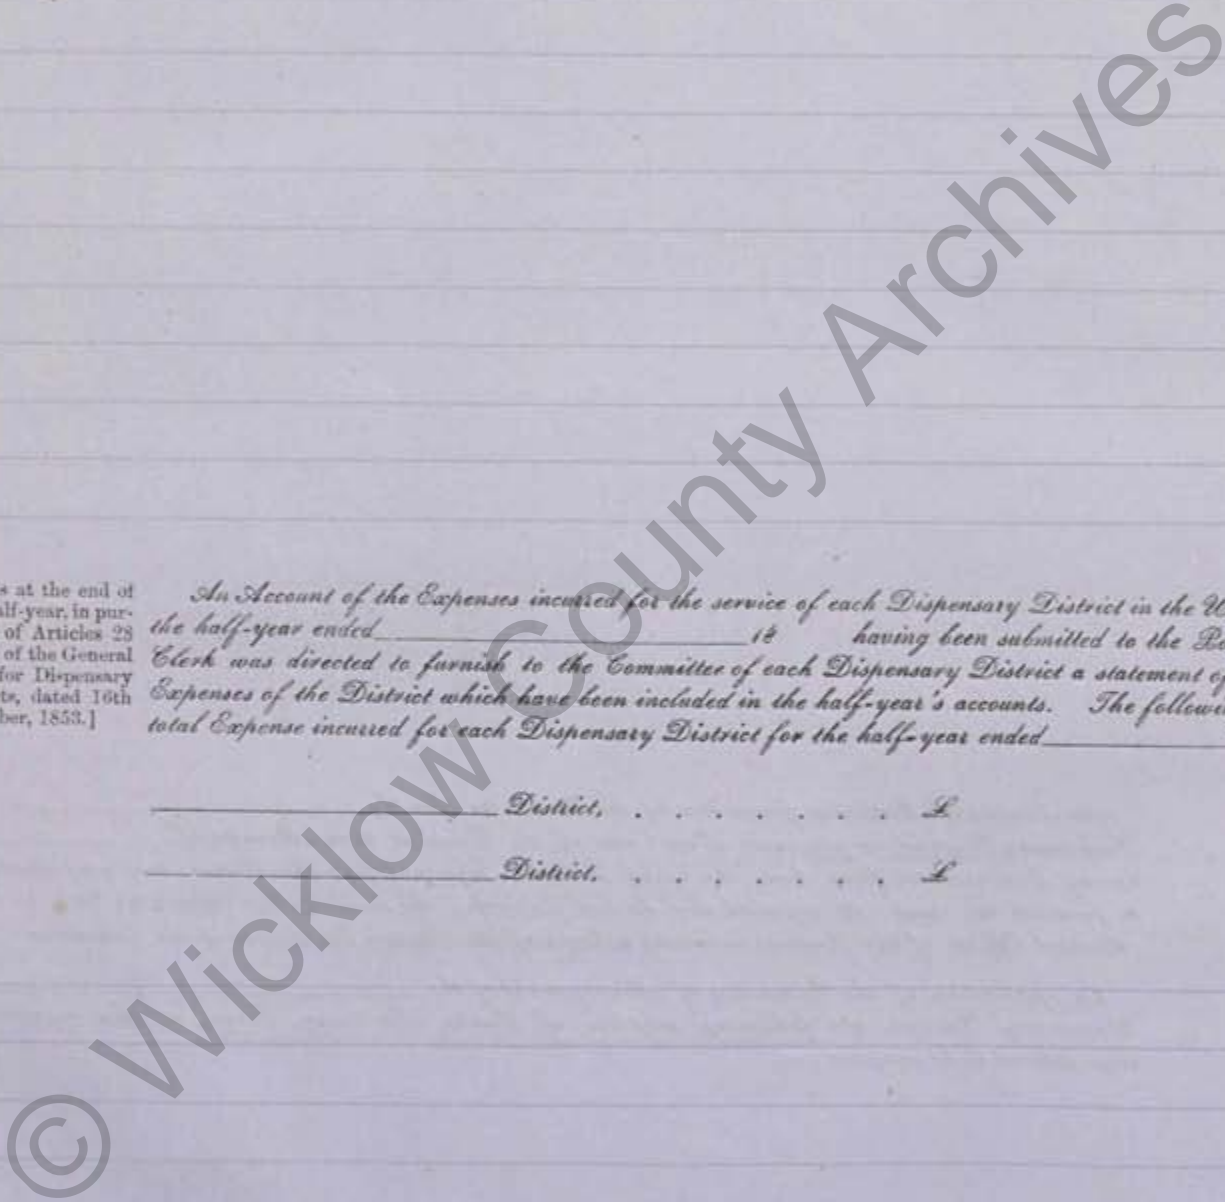 s at the end of
alf-year, in pur-
of Articles 28
of the General
for Dispensary
ts, dated 16th
ber, 1853.]
An Account of the Expenses incurred for the service of each Dispensary District in the U
the half-year ended 18 having been submitted to the Bo
Clerk was directed to furnish to the Committee of each Dispensary District a statement of
Expenses of the District which have been included in the half-year's accounts. The followi
total Expense incurred for each Dispensary District for the half-year ended
District, . . . . . . . £
District, . . . . . . . £
© Wicklow County Archives